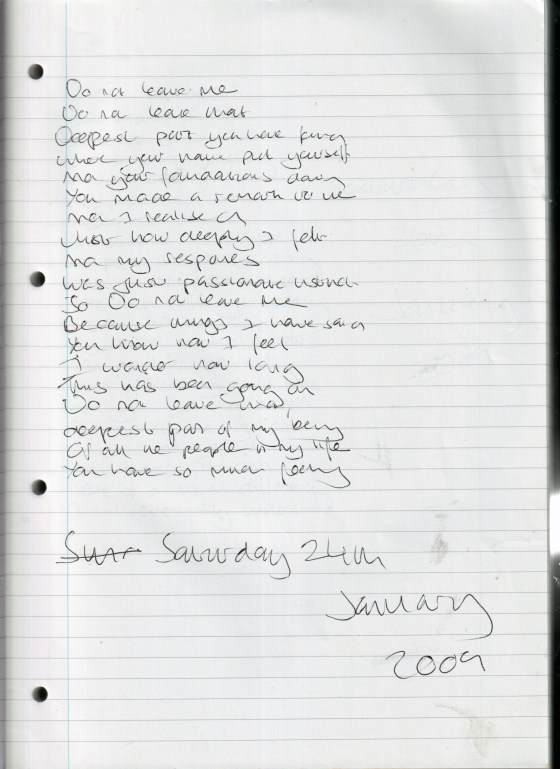 Do not leave me
Do not leave that
Deepest part you have
where you have put yourself
And your foundations down
You made a remark to me
And I realised
Just how deeply I felt
And my response
Was just passionate
So Do not leave me
Because things I have said
You know how I feel
I wonder how long
This has been going on
Do not leave that,
deepest part of my being
Of all the people in my life
You have so much feeling
Saturday 24th
January
2009